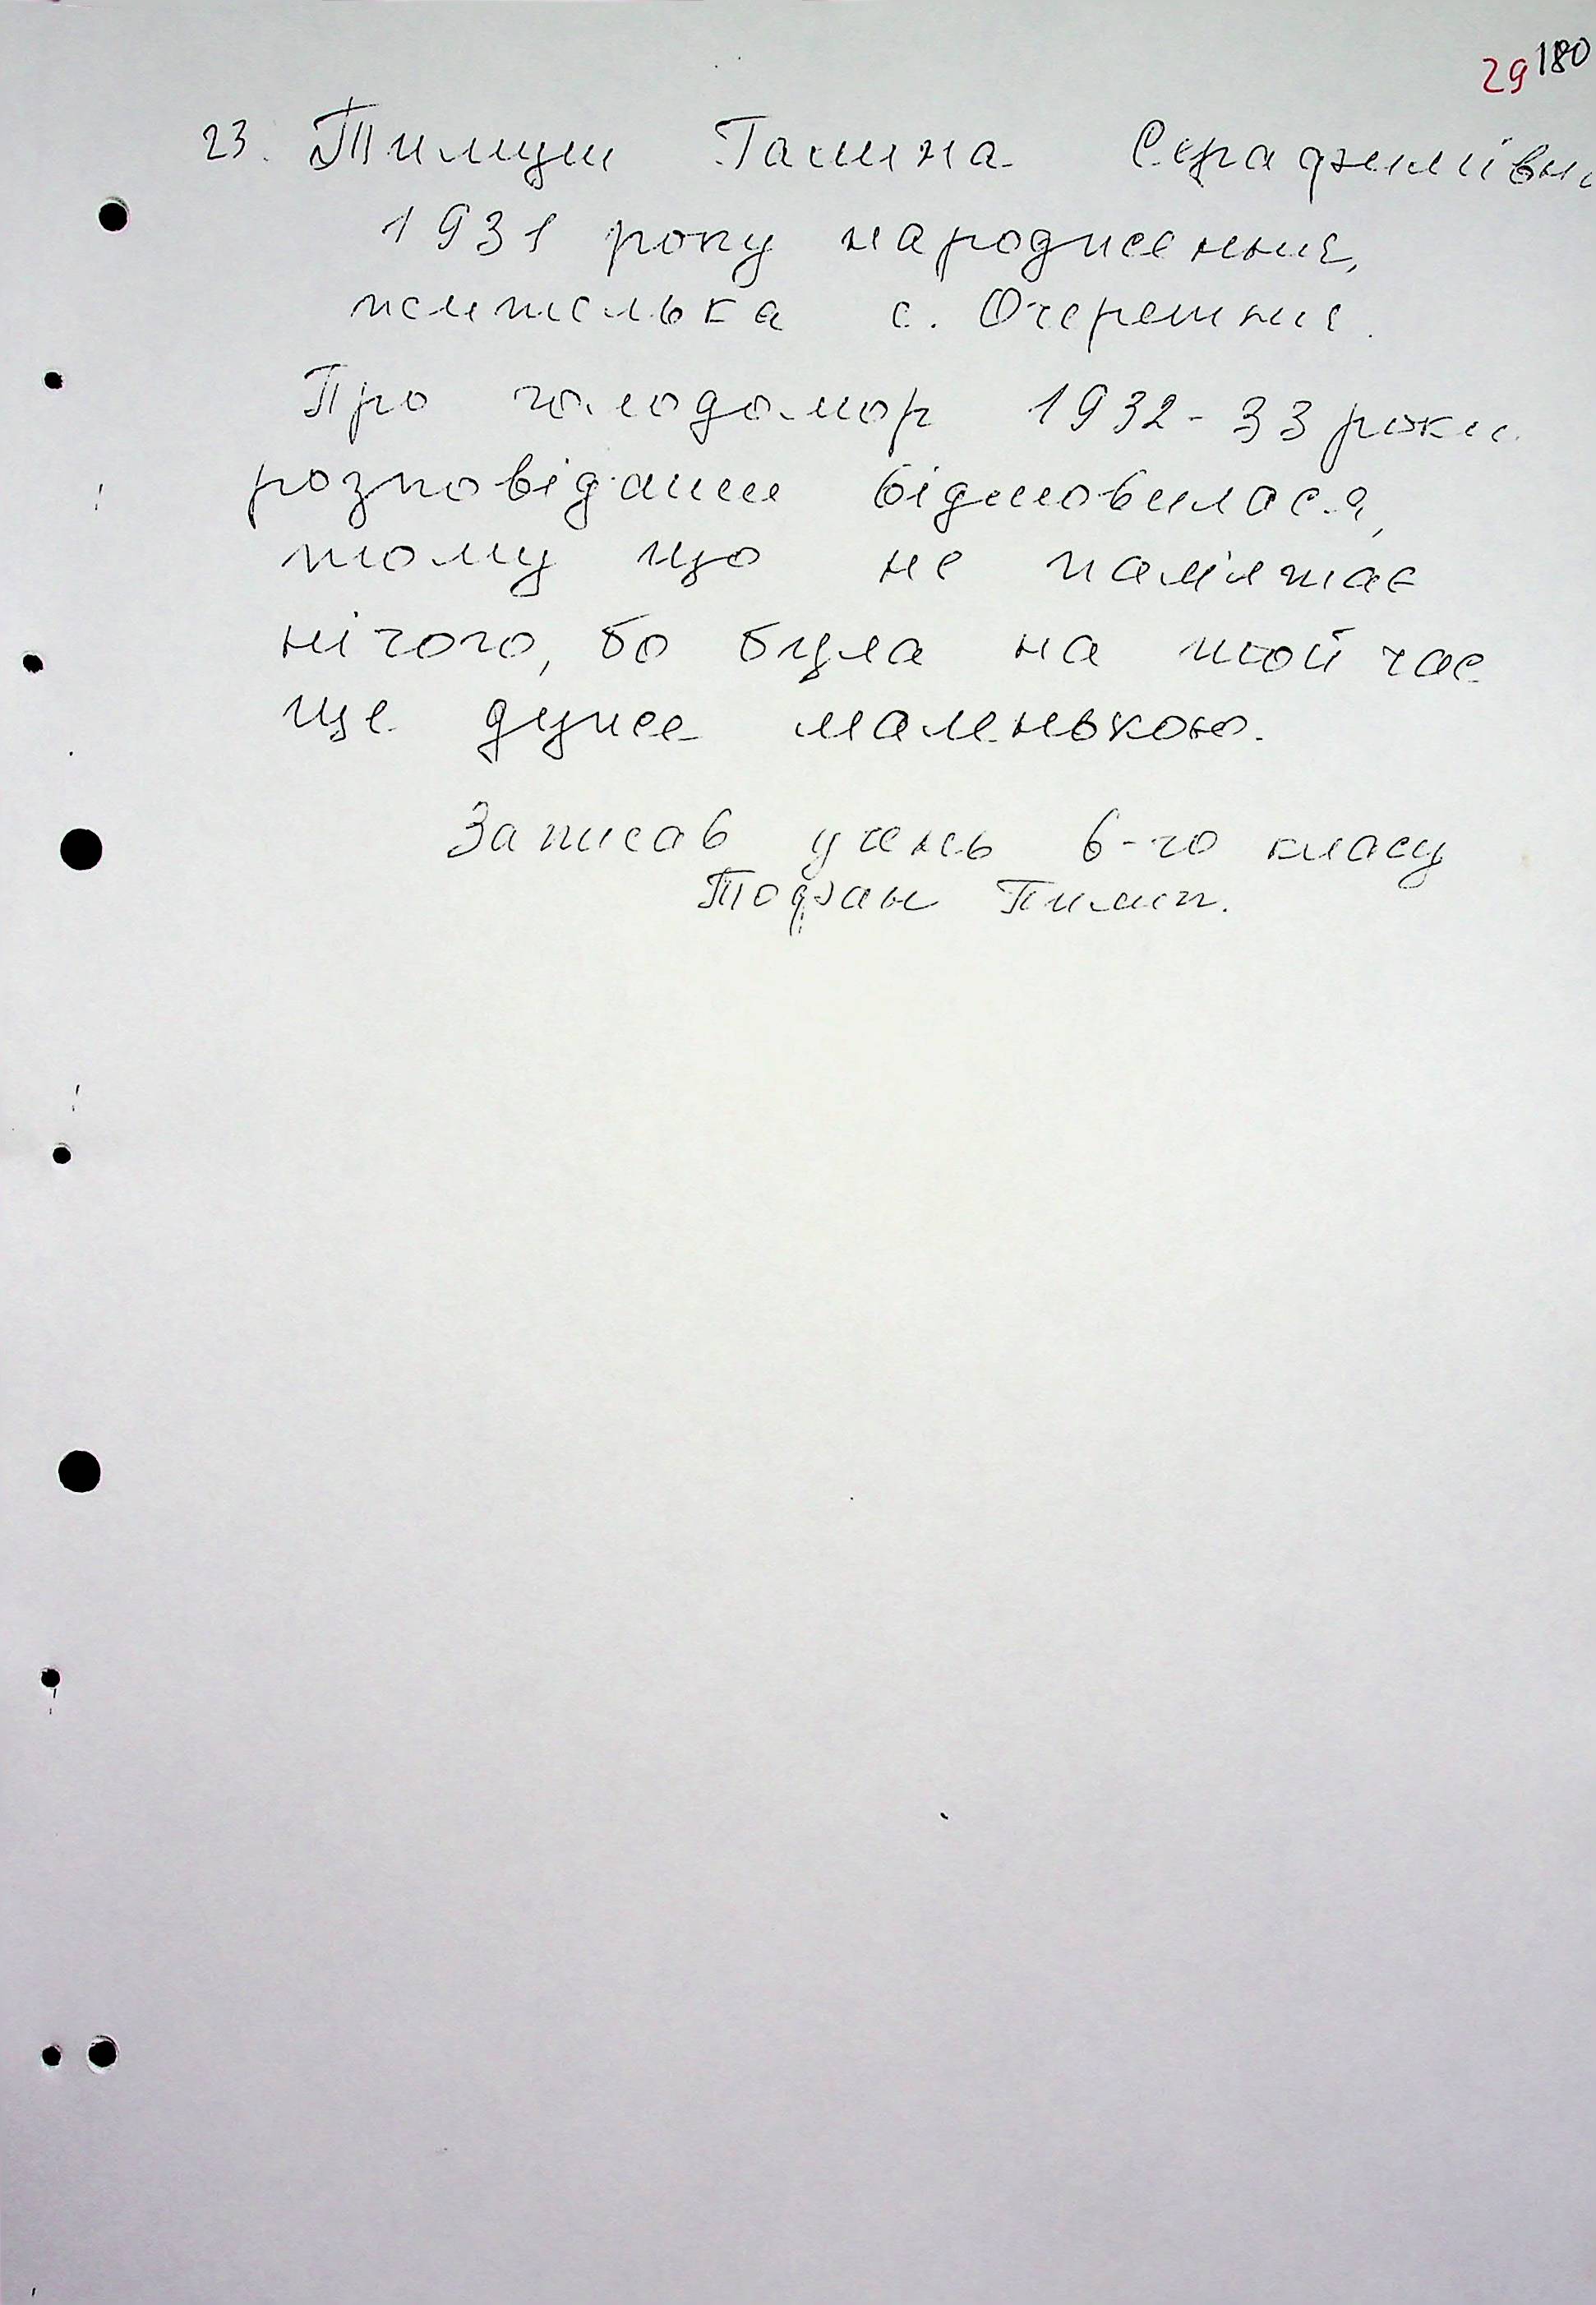 29 180
23. Тимуш Галина Серафимівна
1931 року народження,
жителька с. Очеретня.
Про голодомор 1932-33 роки
розповідати відмовилася,
тому що не пам'ятає
нічого, бо була на той час
ще дуже маленькою.
Записав учень 6-го класу